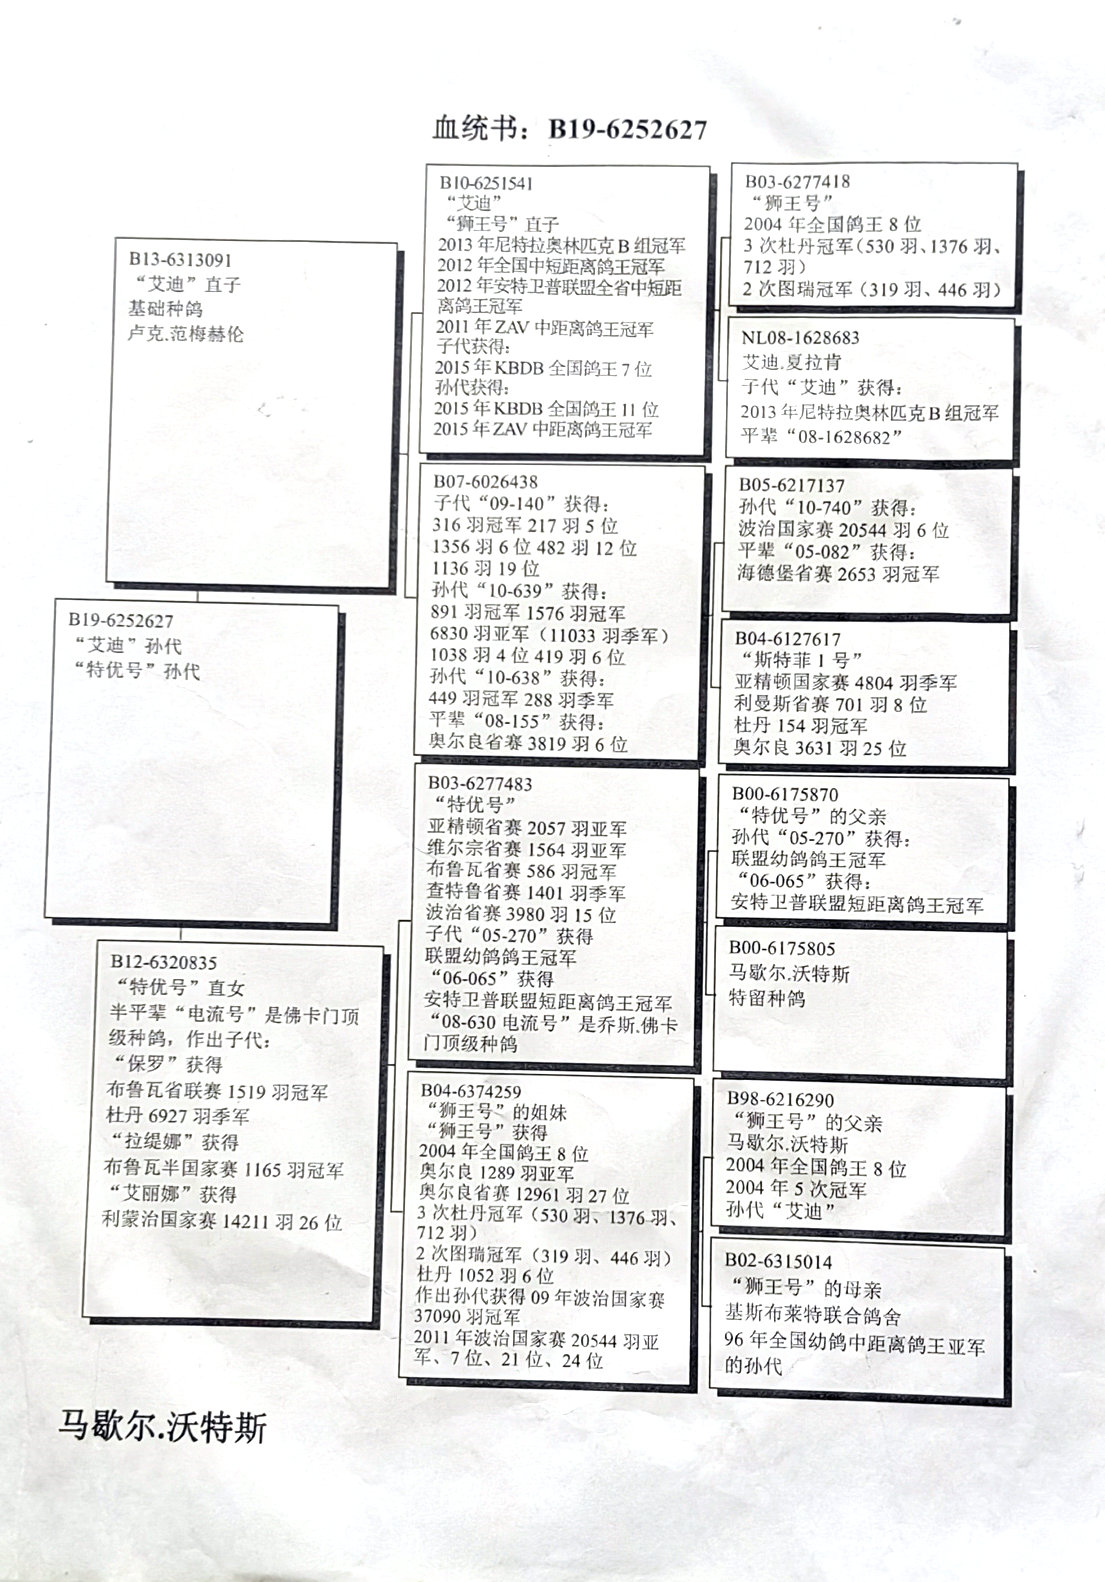 血统书：B19-6252627
B13-6313091
“艾迪”直子
基础种鸽
卢克.范梅赫伦
B19-6252627
“艾迪”孙代
“特优号”孙代
B12-6320835
“特优号”直女
半平辈“电流号”是佛卡门顶
级种鸽，作出子代：
“保罗”获得
布鲁瓦省联赛 1519 羽冠军
杜丹 6927 羽季军
“拉缇娜”获得
布鲁瓦半国家赛 1165 羽冠军
“艾丽娜”获得
利蒙治国家赛 14211 羽 26 位
B10-6251541
“艾迪”
“狮王号”直子
2013 年尼特拉奥林匹克 B 组冠军
2012 年全国中短距离鸽王冠军
2012 年安特卫普联盟全省中短距
离鸽王冠军
2011 年 ZAV 中距离鸽王冠军
子代获得：
2015 年 KBDB 全国鸽王 7 位
孙代获得：
2015 年 KBDB 全国鸽王 11 位
2015 年 ZAV 中距离鸽王冠军
B07-6026438
子代“09-140”获得：
316 羽冠军 217 羽 5 位
1356 羽 6 位 482 羽 12 位
1136 羽 19 位
孙代“10-639”获得：
891 羽冠军 1576 羽冠军
6830 羽亚军（11033 羽季军）
1038 羽 4 位 419 羽 6 位
孙代“10-638”获得：
449 羽冠军 288 羽季军
平辈“08-155”获得：
奥尔良省赛 3819 羽 6 位
B03-6277483
“特优号”
亚精顿省赛 2057 羽亚军
维尔宗省赛 1564 羽亚军
布鲁瓦省赛 586 羽冠军
查特鲁省赛 1401 羽季军
波治省赛 3980 羽 15 位
子代“05-270”获得
联盟幼鸽鸽王冠军
“06-065”获得
安特卫普联盟短距离鸽王冠军
“08-630 电流号”是乔斯.佛卡
门顶级种鸽
B04-6374259
“狮王号”的姐妹
“狮王号”获得
2004 年全国鸽王 8 位
奥尔良 1289 羽亚军
奥尔良省赛 12961 羽 27 位
3 次杜丹冠军（530 羽、1376 羽、
712 羽）
2 次图瑞冠军（319 羽、446 羽）
杜丹 1052 羽 6 位
作出孙代获得 09 年波治国家赛
37090 羽冠军
2011 年波治国家赛 20544 羽亚
军、7 位、21 位、24 位
B03-6277418
“狮王号”
2004 年全国鸽王 8 位
3 次杜丹冠军（530 羽、1376 羽、
712 羽）
2 次图瑞冠军（319 羽、446 羽）
NL08-1628683
艾迪.夏拉肯
子代“艾迪”获得：
2013 年尼特拉奥林匹克 B 组冠军
平辈“08-1628682”
B05-6217137
孙代“10-740”获得：
波治国家赛 20544 羽 6 位
平辈“05-082”获得：
海德堡省赛 2653 羽冠军
B04-6127617
“斯特菲 1 号”
亚精顿国家赛 4804 羽季军
利曼斯省赛 701 羽 8 位
杜丹 154 羽冠军
奥尔良 3631 羽 25 位
B00-6175870
“特优号”的父亲
孙代“05-270”获得：
联盟幼鸽鸽王冠军
“06-065”获得：
安特卫普联盟短距离鸽王冠军
B00-6175805
马歇尔.沃特斯
特留种鸽
B98-6216290
“狮王号”的父亲
马歇尔.沃特斯
2004 年全国鸽王 8 位
2004 年 5 次冠军
孙代“艾迪”
B02-6315014
“狮王号”的母亲
基斯布莱特联合鸽舍
96 年全国幼鸽中距离鸽王亚军
的孙代
马歇尔.沃特斯